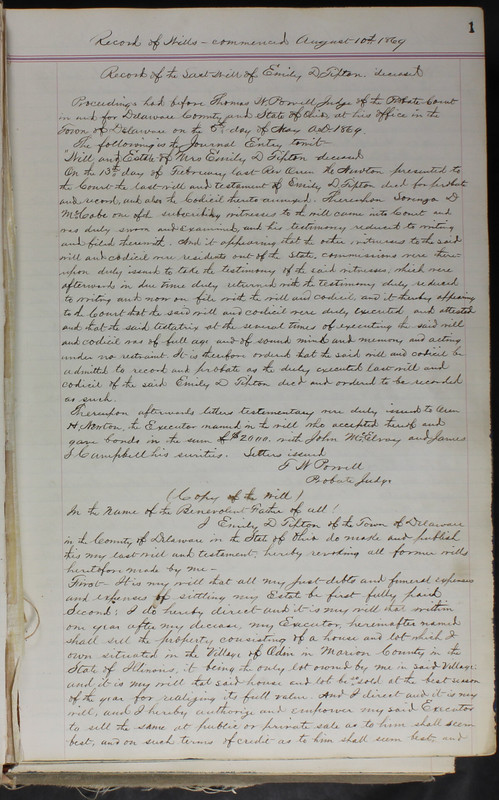 1
Record of Wills - commenced August 10th 1869
Record of the Last Will of Emily D Tipton deceased
Proceedings had before Thomas W Powell Judge of the Probate Court
in and for Delaware County and State of Ohio, at his office in the
Town of Delaware on the 5th day of May A.D. 1869.
The following is the Journal Entry to wit-
"Will and Estate of Mrs Emily D Tipton deceased
On the 13th day of February last Rev Oren H Newton presented to
the Court the last will and testament of Emily D Tipton decd for probate
and record, and also the Codicil thereto annexed. Thereupon Lorenzo D
McCabe one of the subscribing witnesses to the will came into Court and
was duly sworn and examined, and his testimony reduced to writing
and filed therewith. And it appearing that the other witnesses to the said
will and codicil were residents out of the State, commissions were there-
upon duly issued to take the testimony of the said witnesses, which were
afterwards in due time duly returned with the testimony duly reduced
to writing and now on file with the will and codicil, and it thereby appearing
to the Court that the said will and codicil were duly executed and attested
and that the said testatrix at the several times of executing the said will
and codicil was of full age and of sound mind and memory and acting
under no restraint. It is therefore ordered that the said will and codicil be
admitted to record and probate as the duly executed last will and
codicil of the said Emily D Tipton decd and ordered to be recorded
as such.
Thereupon afterwards letters testamentary were duly issued to Oren
H. Newton, the Executor named in the will who accepted thereof and
gave bonds in the sum of $2000. with John McElroy and James
Campbell his sureties. Letters issued
T W Powell
Probate Judge
(Copy of the Will)
In the Name of the Benevolent Father of all!
I Emily D Tipton of the Town of Delaware
in the County of Delaware in the Stat of Ohio do made and publish
this my last will and testament, hereby revoking all former wills
heretofore made by me -
First - It is my will that all my just debts and funeral expenses
and expenses of settling my Estate be first fully paid
Second; I do hereby direct and it is my will that within
one year after my decease, my Executor, hereinafter named
shall sell the property consisting of a house and lot which I
own situated in the Village of Odin in Marion County in the
State of Illinois, it being the only lot owned by me in said Village:
and it is my will that said house and lot be sold at the best season
of the year for realizing its full value. And I direct and it is my
will, and I hereby authorize and empower my said Executor
to sell the same at public or private sale as to him shall seem
best, and on such terms of credit as to him shall seem best, and